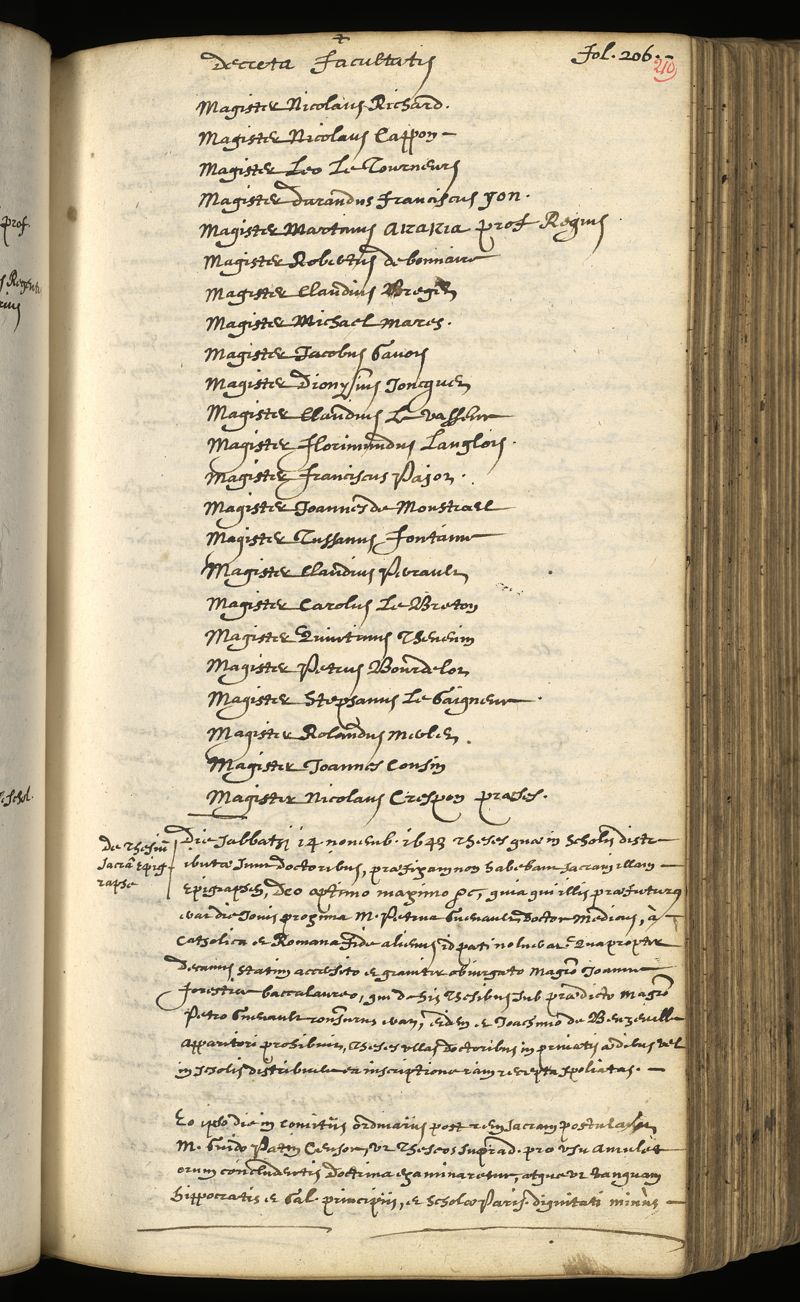 Decreta Facultatis
Fol. 206.
210
Magister Nicolaus Richard.
Magister Nicolaus Cappon
Magister Leo Le Tourneurs
Magister Darandus Franciscus Yon.
Magister Martinus Akakia prof Regius
Magister Robertus de bonnaire
Magister Claudius Breget
Magister Michael Mares.
Magister Jacobus Gavois
Magister Dionysius Joncquet
Magister Claudius Le Vasseur
Magister Florimundus Langlois.
Magister Franciscus Pajot.
Magister Joannes de Monstreel
Magister Tussanus Fontaine
Magister Claudius Perault
Magister Carolus Le Breton
Magister Quintinus Thevenin
Magister Petrus Bourdelot
Magister Stephanus Le Gaigneur.
Magister Rolandus Merlet.
Magister Joannes Cousin
Magister Nicolaus Crespon præses.
De Thesiū
sacrâ Epig-
raphe
Die Sabbathi 14 novemb. 1643 Theses quæ in Scholis distr
ibutæ sunt doctoribus, præfixam non habebant sacram illam
Epigraphen, Deo optimo maximo &c, quia qui illis præfuturus
erat die Jovis proxima M. Petrus Guenault Doctor Medicus, à
Catholica et Romana fide alienus id pati noluerat. Quapropter
Decanus statim accersito et graviter obiurgato Magrō Joanne
Forestier baccalaureo, qui de his Thesibus sub prædicto Magrō
Petro Guenault responsurus erat, eidem et Joachimo de Benzeville
apparitori prohibuit, theses ullas Doctoribus in privatis ædibus vel
in scholis distribuere ea inscriptione iam recepta spoliatas.
Eo ipso die in comitiis ordinariis post rem sacram postulavit
M. Guido Patin Censor, ut Theseos suprad. pro usu amulet
orum concludentis doctrina examinaretur, atque ut tanquam
Hippocratis et Gal. principiis, et Scholæ Paris. dignitati minus
prof.
Schol.